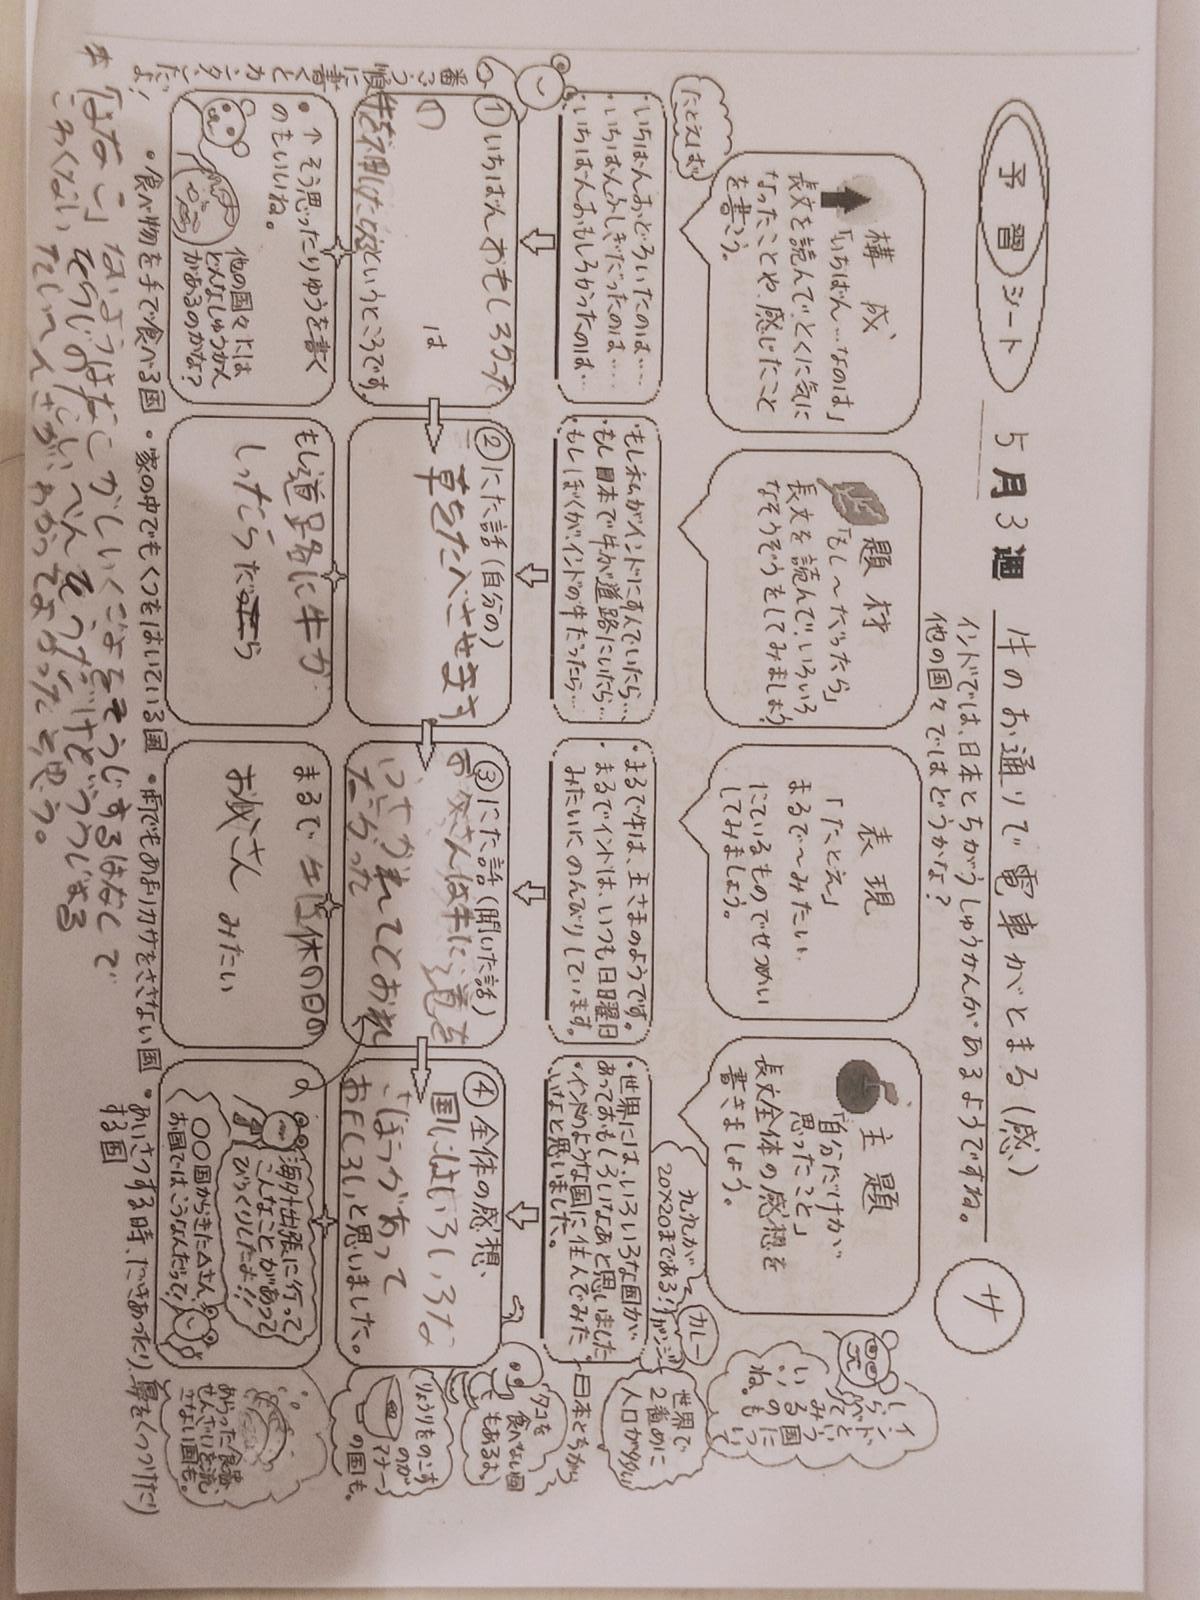 予習シート
5月3週
牛のお通りで電車がとまる(感)
サ
インドでは、日本とちがうしゅうかんがあるようですね。
他の国々ではどうかな?
構成
「いちばん…なのは」
長文を読んで、とくに気に
なったことや、感じたこと
を書こう。
題材
「もし〜だったら」
長文を読んで、いろいろ
なそうぞうをしてみましょう
表現
「たとえ」
まるで〜みたい、
にているものでせつめい
してみましょう。
主題
「自分だけが
思ったこと」
長文全体の感想を
書きましょう。
たとえば
・いちばんおどろいたのは……
・いちばんふしぎだったのは……
・いちばんおもしろかったのは…
・もし私がインドにすんでいたら…
・もし日本で牛が道路にいたら…
・もしぼくが、インドの牛だったら…
・まるで牛は、王さまのようです。
・まるでインドは、いつも日曜日
みたいに、のんびりしています。
・世界には、いろいろな国が
あっておもしろいなあと思いました
・インドのような国に住んでみた
いなと思いました。
九九が
20×20まである!
カレー
世界で
2番めに
人口が多い
日本とちがう
番ごう順に書くとカンタンだよ!
①いちばんおもしろかった
の
は
というところです。
②にた話(自分の)
草をたべさせます
③にた話(聞いた話)
お父さんは牛に道を
④全体の感想、
国にはいろいろな
があって
おもしろいと思いました。
タコを
食べない国
もあるよ。
りょうりをのこす
のが
マナー
の国も。
・↑そう思ったりゆうを書く
のもいいね。
他の国々には
どんなしゅうかん
があるのかな?
もし道路に牛が
しったらうだ
まるで牛は休の日の
お父さんみたい
海外出張に行って
こんなことがあって
びっくりしたよ!!
〇〇国からきた△さん
お国ではこうなんだって!
あらった食器、
せんざいを流
さない国も。
・食べ物を手で食べる国
・家の中でもくつをはいている国
・雨でもあまりカサをささない国
・あいさつする時、だきあったり、鼻をくっつけたり
する国